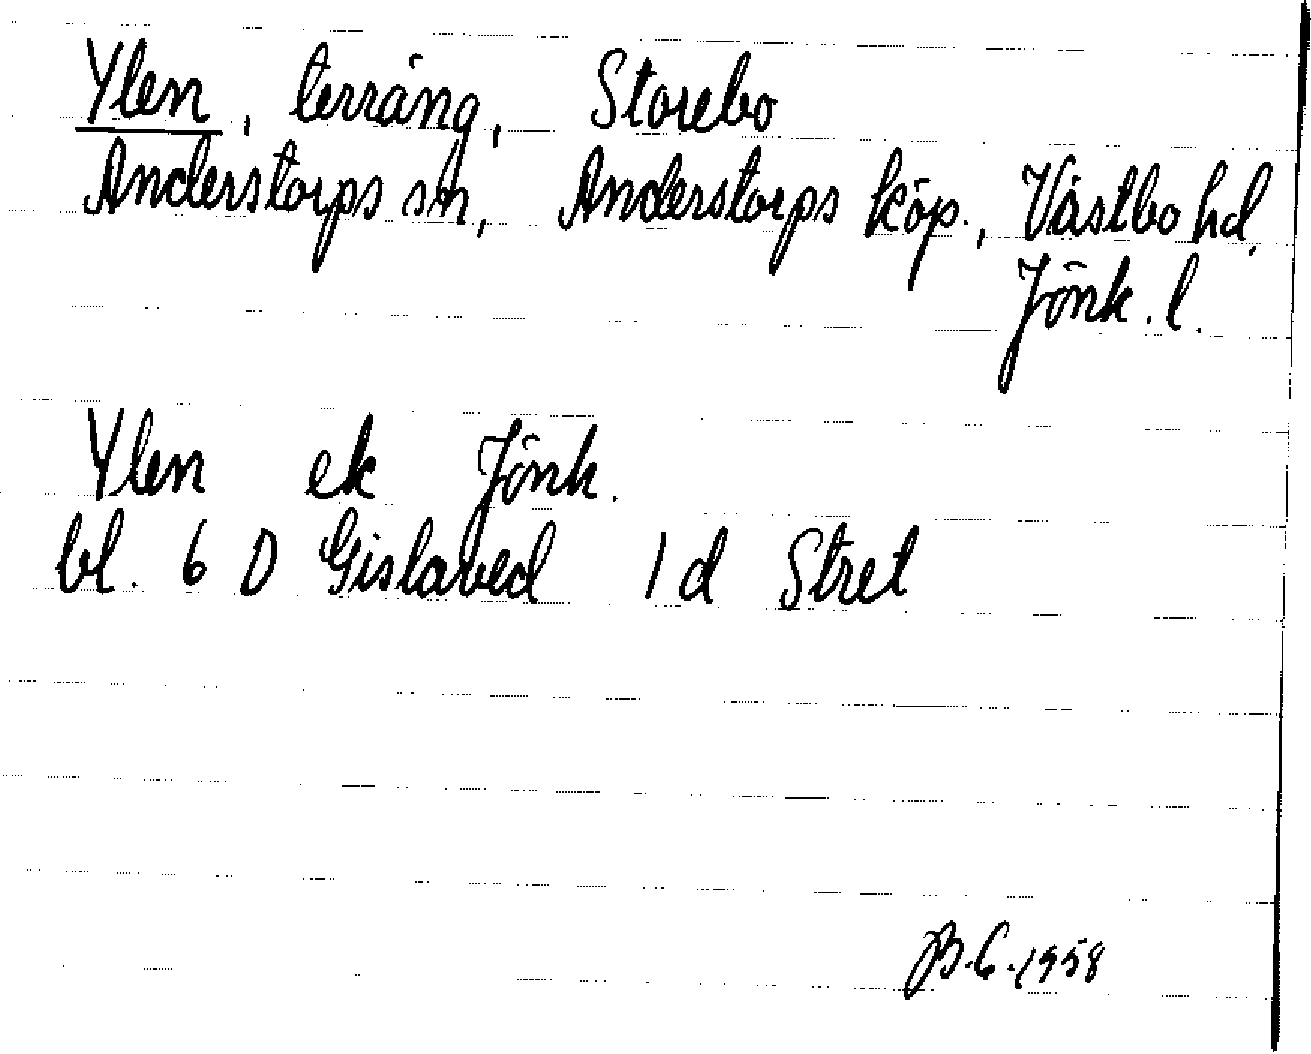 Ylen, terräng, Storebo
Anderstorps sn, Anderstorps köp., Västbo hd,
Jönk. l.
Ylen ek Jönk.
bl. 6 D Gislaved 1 d Stret
B.G. 1958